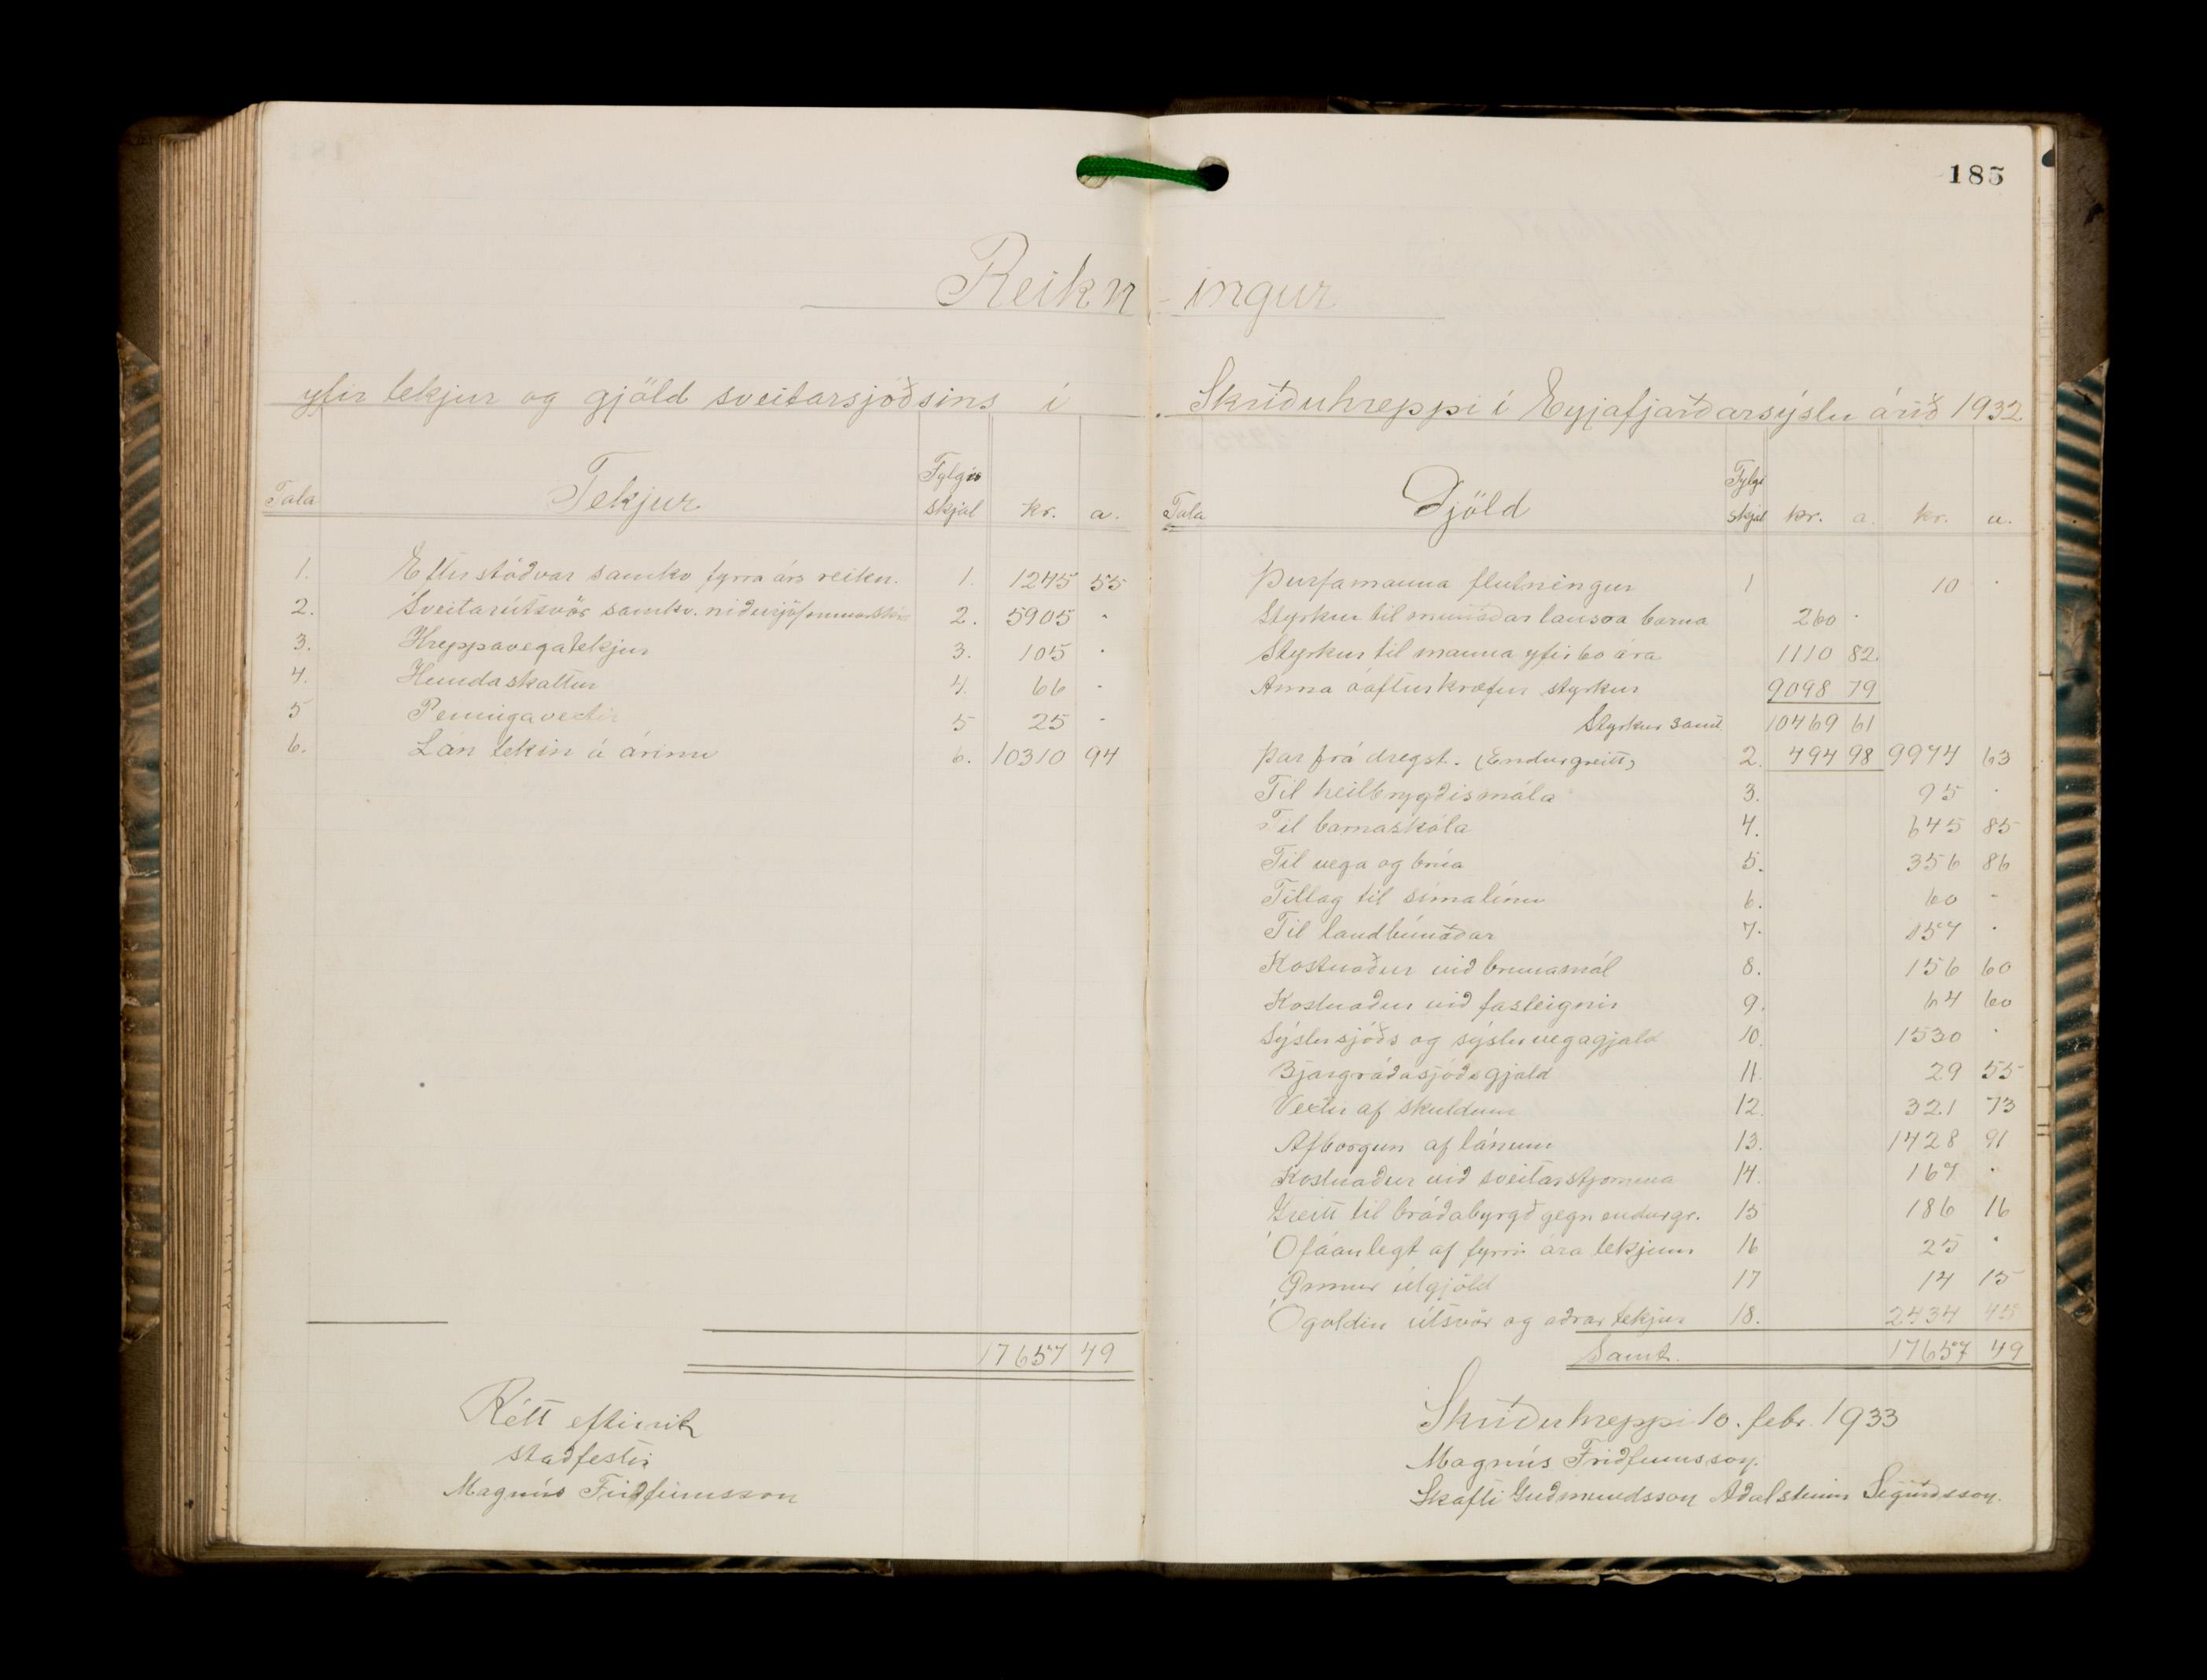 185
Reikn-ingur
yfir tekjur og gjöld sveitarsjóðsins í Skriðuhreppi í Eyjafjarðarsýslu árið 1932
Tala Tekjur Fylgiskjal kr. a.
1. Eftirstöðvar samkv fyrra árs reikn. 1. 1245 55
2. Sveitarútsvör samkv. niðurjöfnunarskrá 2. 5905 -
3. Kreppavegatekjur 3. 105 -
4. Hundaskattur 4. 66 -
5 Peningavextir 5 25 -
6. Lán tekin á árinu 6. 10310 94
17657 49
Rétt eftirrit
staðfestir
Magnús Friðfinnsson
Tala Gjöld Fylgiskjal kr. a. kr. a.
Þurfamanna flutningur 1 10 -
Styrkur til munaðarlausra barna 260 -
Styrkur til manna yfir 60 ára 1110 82
Annar óafturkræfur styrkur 9098 79
Styrkur samt 10469 61
Þar frá dregst. (Endurgreitt) 2. 494 98 9974 63
Til heilbrygðismála 3. 95 -
Til barnaskóla 4. 645 85
Til vega og brúa 5. 356 86
Tillag til símalínu 6. 60 -
Til landbúnaðar 7. 157 -
Kostnaður við brunamál 8. 156 60
Kostnaður við fasteignir 9. 64 60
Sýslusjóðs og sýsluvegagjald 10. 1530 -
Bjargráðasjóðsgjald 11. 29 55
Vextir af skuldum 12. 321 73
Afborgun af lánum 13. 1428 91
Kostnaður við sveitarstjornina 14. 167 -
Greitt til bráðabyrgð gegn endurgr. 15 186 16
Ófáanlegt af fyrri ára tekjum 16 25 -
Ýmmur útgjöld 17 14 15
Ógoldin útsvör og aðrar tekjur 18. 2434 45
Samt. 17657 49
Skriðuhreppi 10. febr. 1933
Magnús Friðfinnsson.
Skafti Guðmundsson Aðalsteinn Sigurðsson.